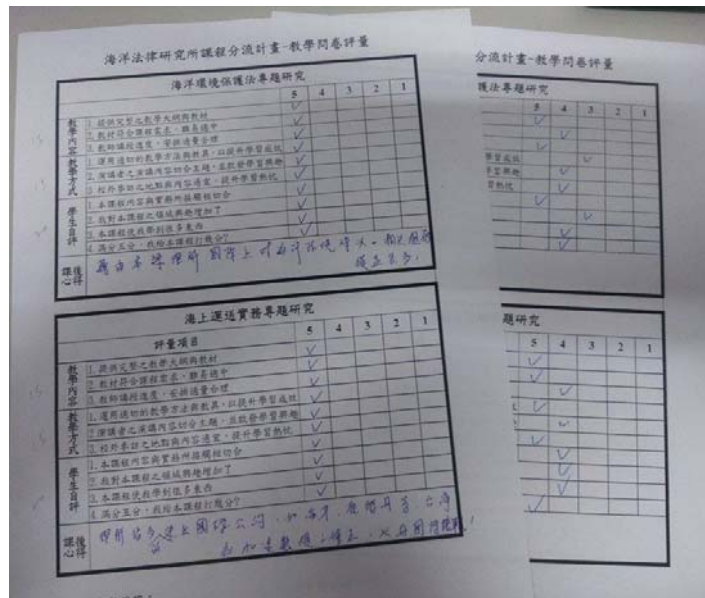 海洋法律研究所課程分流計畫-教學問卷評量
海洋環境保護法專題研究
5 4 3 2 1
教學內容
1. 提供完整之教學大綱與教材
2. 教材符合課程需求、難易適中
3. 教師講授進度、安排適量合理
教學方式
1. 運用適切的教學方法與教具，以提升學習成效
2. 演講者之演講內容切合主題，並啟發學習興趣
3. 校外參訪之地點與內容適宜，提升學習熱忱
學生自評
1. 本課程內容與實務所接觸相切合
2. 我對本課程之領域興趣增加了
3. 本課程使我學到很多東西
4. 滿分五分，我給本課程打幾分?
課後心得
海上運送實務專題研究
評量項目 5 4 3 2 1
教學內容
1. 提供完整之教學大綱與教材
2. 教材符合課程需求、難易適中
3. 教師講授進度、安排適量合理
教學方式
1. 運用適切的教學方法與教具，以提升學習成效
2. 演講者之演講內容切合主題，並啟發學習興趣
3. 校外參訪之地點與內容適宜，提升學習熱忱
學生自評
1. 本課程內容與實務所接觸相切合
2. 我對本課程之領域興趣增加了
3. 本課程使我學到很多東西
4. 滿分五分，我給本課程打幾分?
課後心得
分流計畫-教學問卷評量
護法專題研究
5 4 3 2 1
學習成效
學習興趣
習熱忱
題研究
5 4 3 2 1